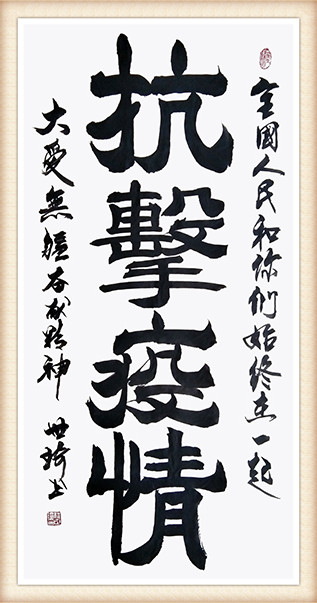 全國人民和你們始終在一起
抗擊疫情
大愛無疆奉献精神